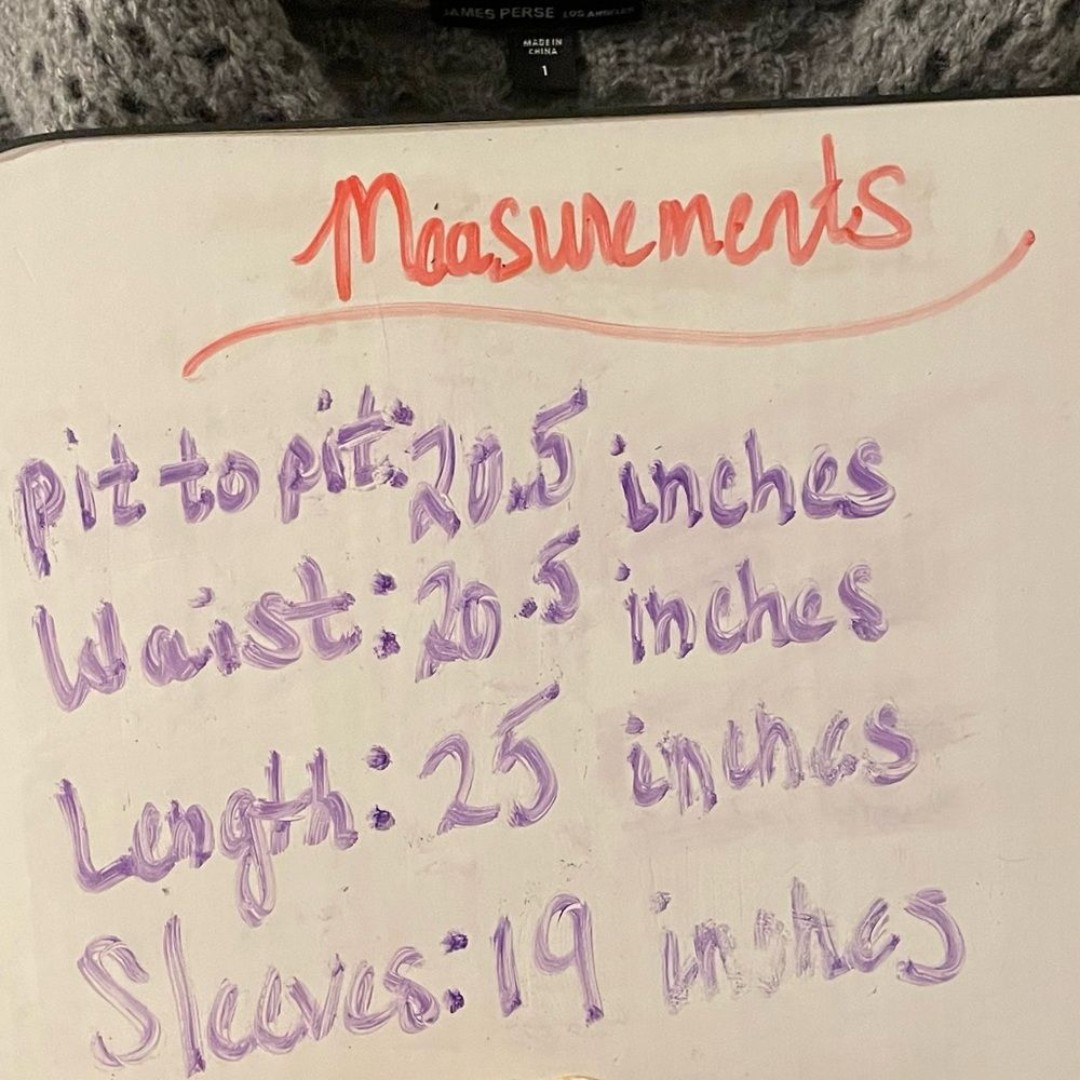 JAMES PERSE LOS ANGELES
MADE IN
CHINA
1
Measurements
pit to pit: 20.5 inches
Waist: 20.5 inches
Length: 25 inches
Sleeves: 19 inches